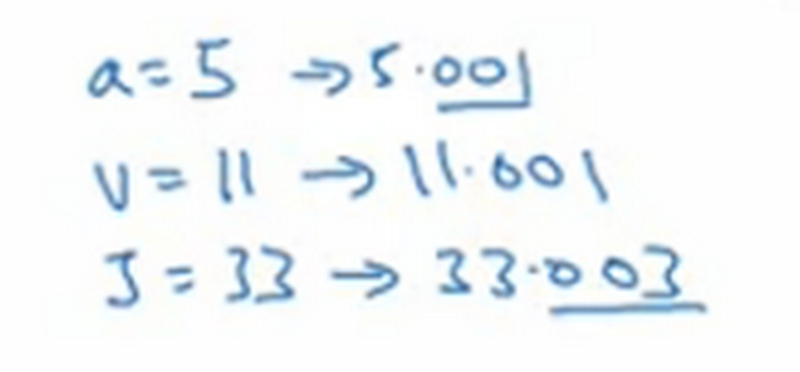 a = 5 → 5.001
v = 11 → 11.001
J = 33 → 33.003